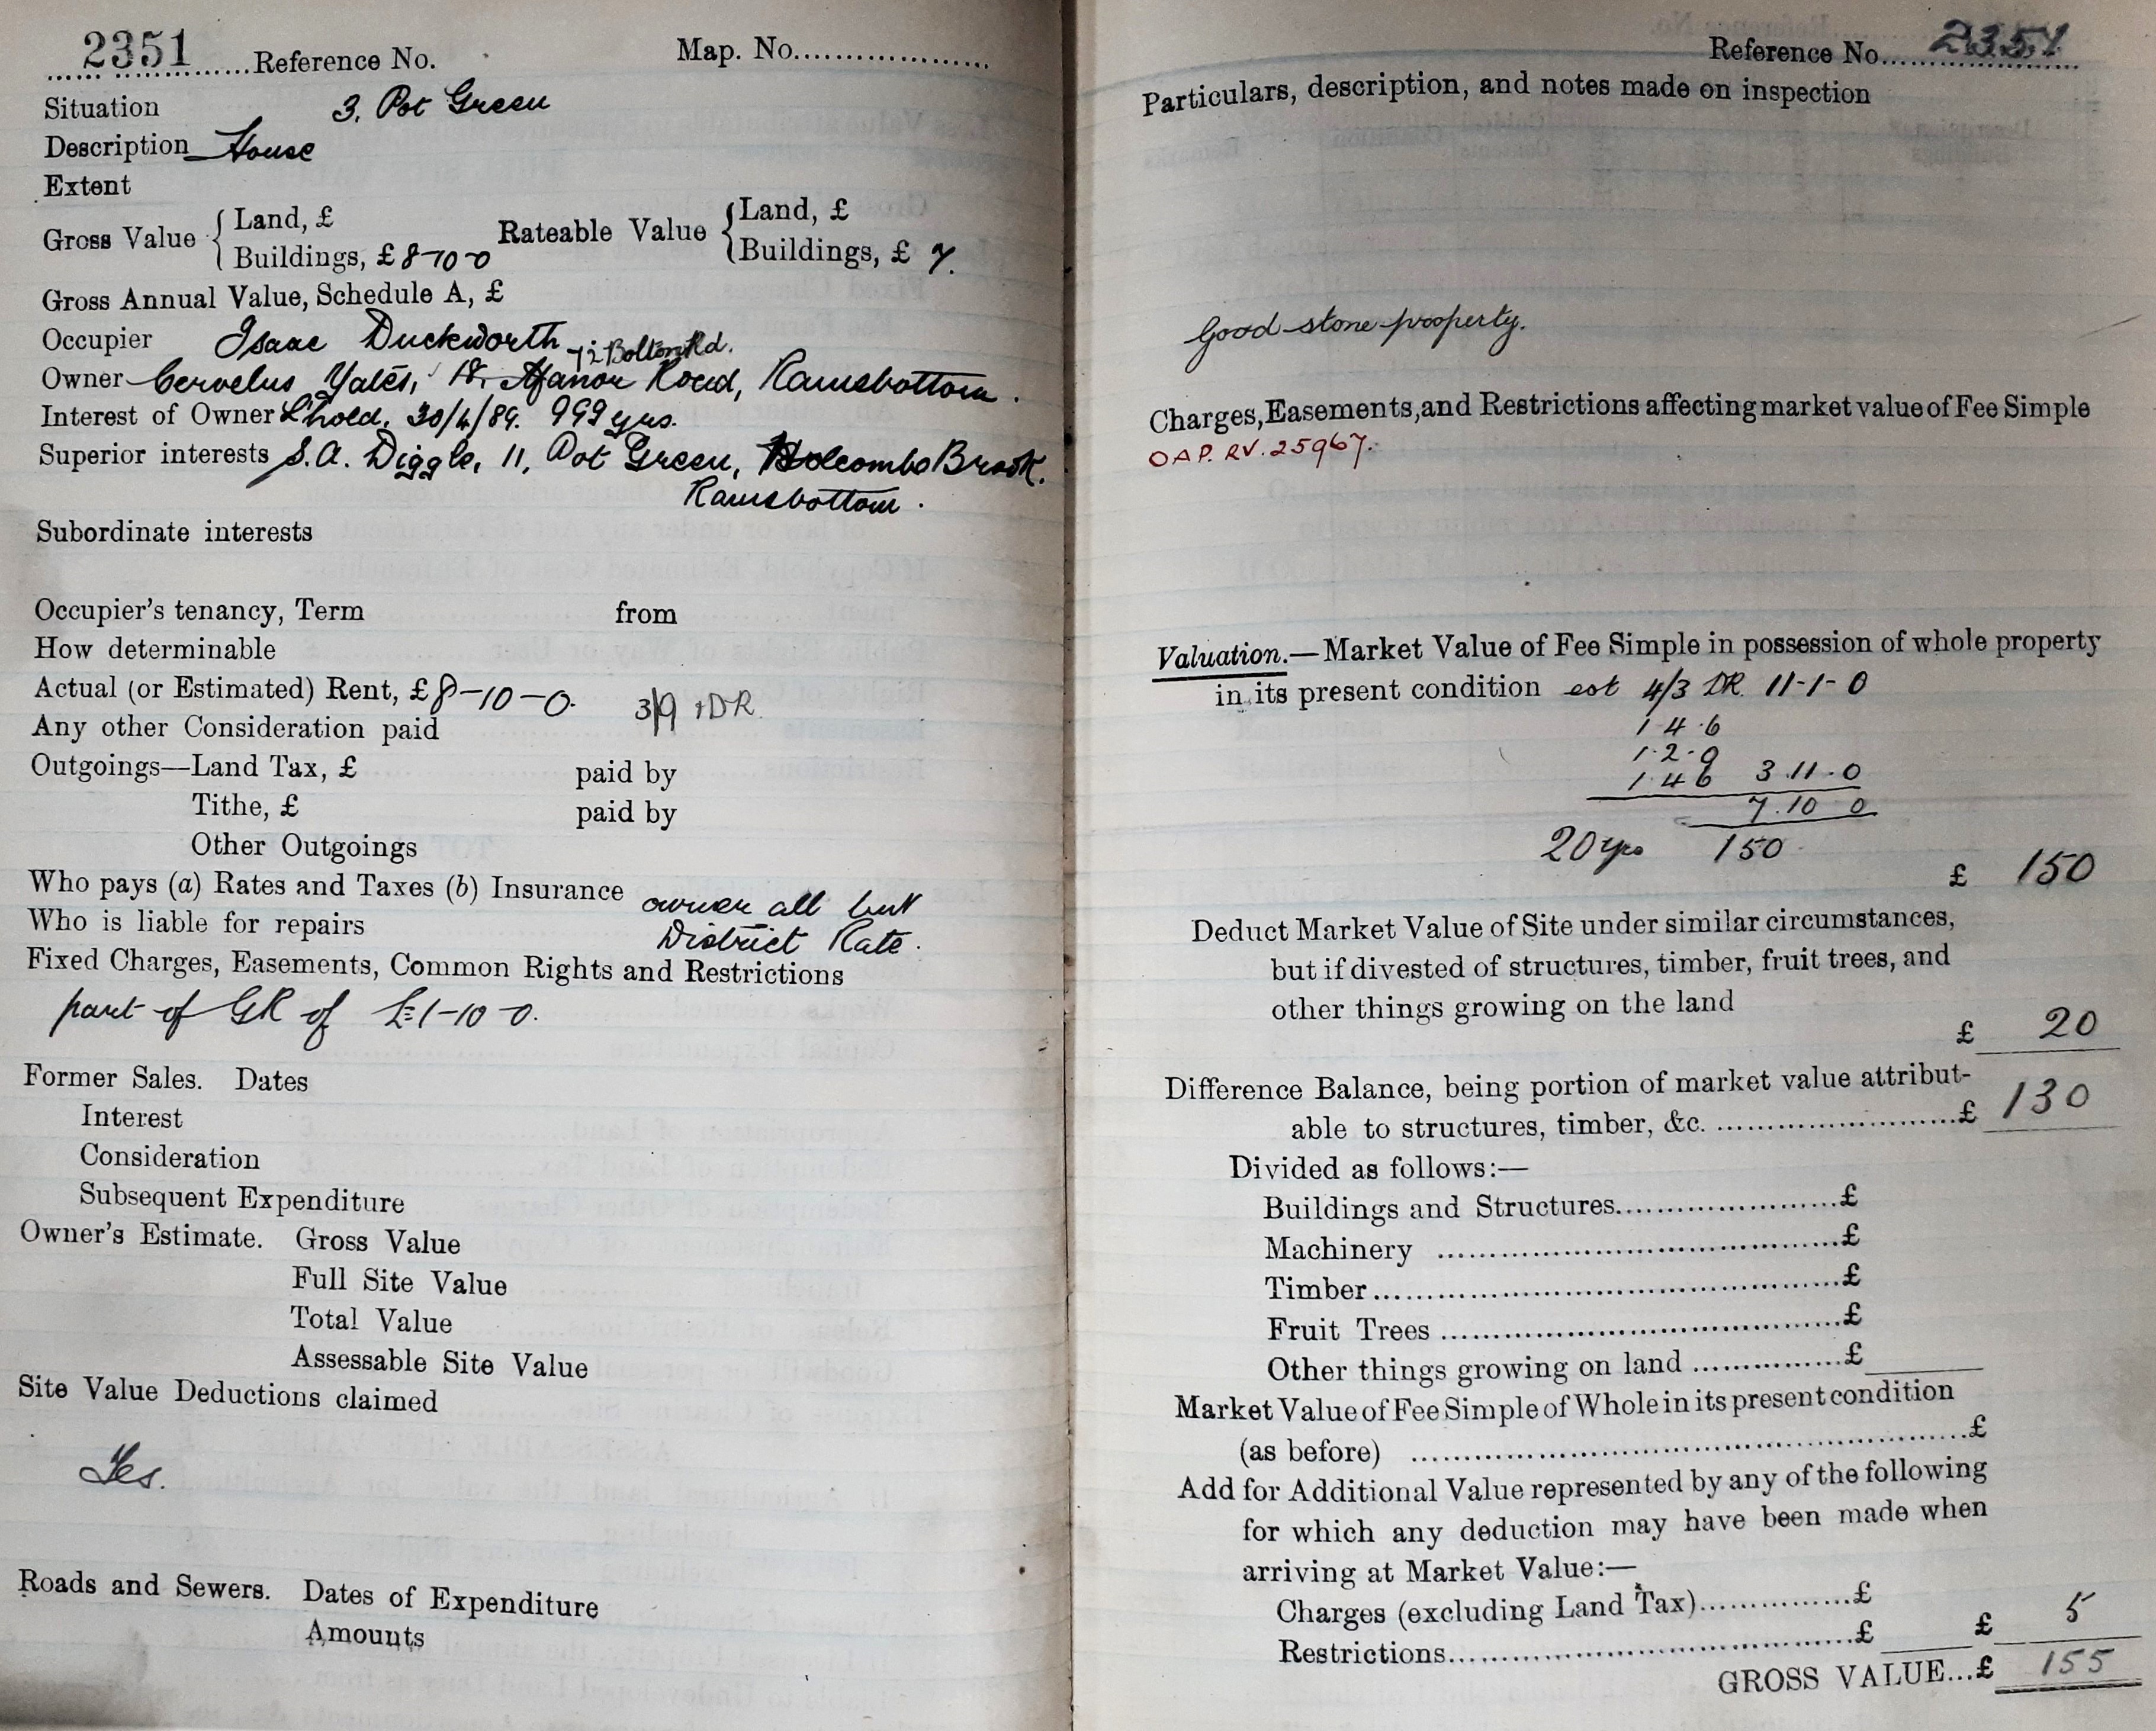 2351 Reference No. Map. No.
Situation 3, Pot Green
Description House
Extent
Gross Value { Land, £ Rateable Value { Land, £
Buildings, £ 8-10-0 Buildings, £ 7.
Gross Annual Value, Schedule A, £
Occupier Isaac Duckworth
72 Bolton Rd.
Owner Yates, 18, Manor Road, Ramsbottom.
Interest of Owner L'hold, 30/4/89. 999 yrs.
Superior interests S.A. Diggle, 11, Pot Green, Holcombe Brook.
Ramsbottom.
Subordinate interests
Occupier's tenancy, Term from
How determinable
Actual (or Estimated) Rent, £ 8-10-0. 3/9 + DR.
Any other Consideration paid
Outgoings—Land Tax, £ paid by
Tithe, £ paid by
Other Outgoings
Who pays (a) Rates and Taxes (b) Insurance owner all but
Who is liable for repairs District Rate.
Fixed Charges, Easements, Common Rights and Restrictions
part of GR of £1-10-0.
Former Sales. Dates
Interest
Consideration
Subsequent Expenditure
Owner's Estimate. Gross Value
Full Site Value
Total Value
Assessable Site Value
Site Value Deductions claimed
Yes.
Roads and Sewers. Dates of Expenditure
Amounts
Reference No. 2351
Particulars, description, and notes made on inspection
Good stone property.
Charges, Easements, and Restrictions affecting market value of Fee Simple
OAP. RV. 25967.
Valuation.—Market Value of Fee Simple in possession of whole property
in its present condition est 4/3 DR. 11-1-0
1 4 6
1-2-9
1 4 6 3.11.0
7.10 0
20 yrs 150
£ 150
Deduct Market Value of Site under similar circumstances,
but if divested of structures, timber, fruit trees, and
other things growing on the land
£ 20
Difference Balance, being portion of market value attribut-
able to structures, timber, &c. £ 130
Divided as follows:—
Buildings and Structures £
Machinery £
Timber £
Fruit Trees £
Other things growing on land £
Market Value of Fee Simple of Whole in its present condition
(as before) £
Add for Additional Value represented by any of the following
for which any deduction may have been made when
arriving at Market Value:—
Charges (excluding Land Tax) £
Restrictions £ £ 5
GROSS VALUE...£ 155